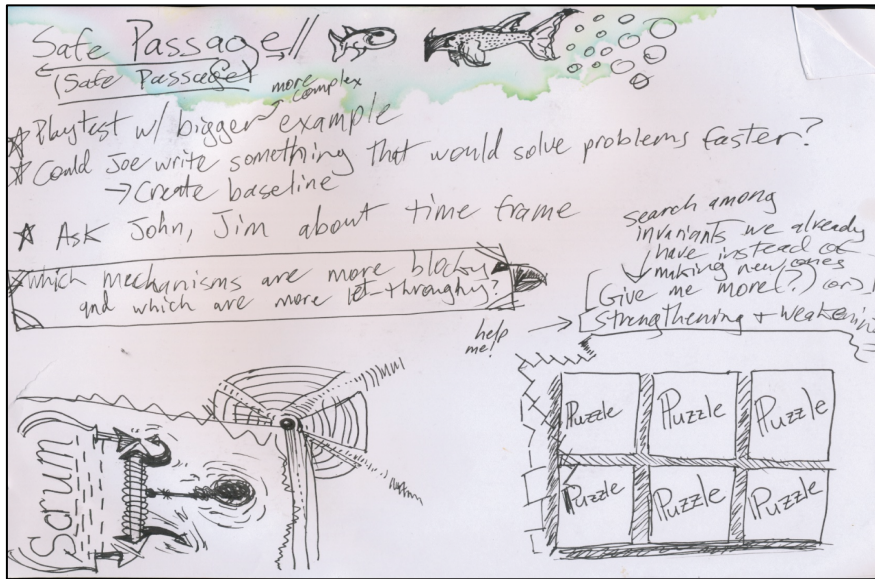 Safe Passage//
(Safe Passage)
more complex
Playtest w/ bigger example
Could Joe write something that would solve problems faster?
→ Create baseline
Ask John, Jim about time frame
which mechanisms are more blocky
and which are more let-throughy?
search among
invariants we already
have instead of
making new ones
Give me more(?) (or)
help me!
Strengthening + weakening
Scrum
Puzzle Puzzle Puzzle
Puzzle Puzzle Puzzle